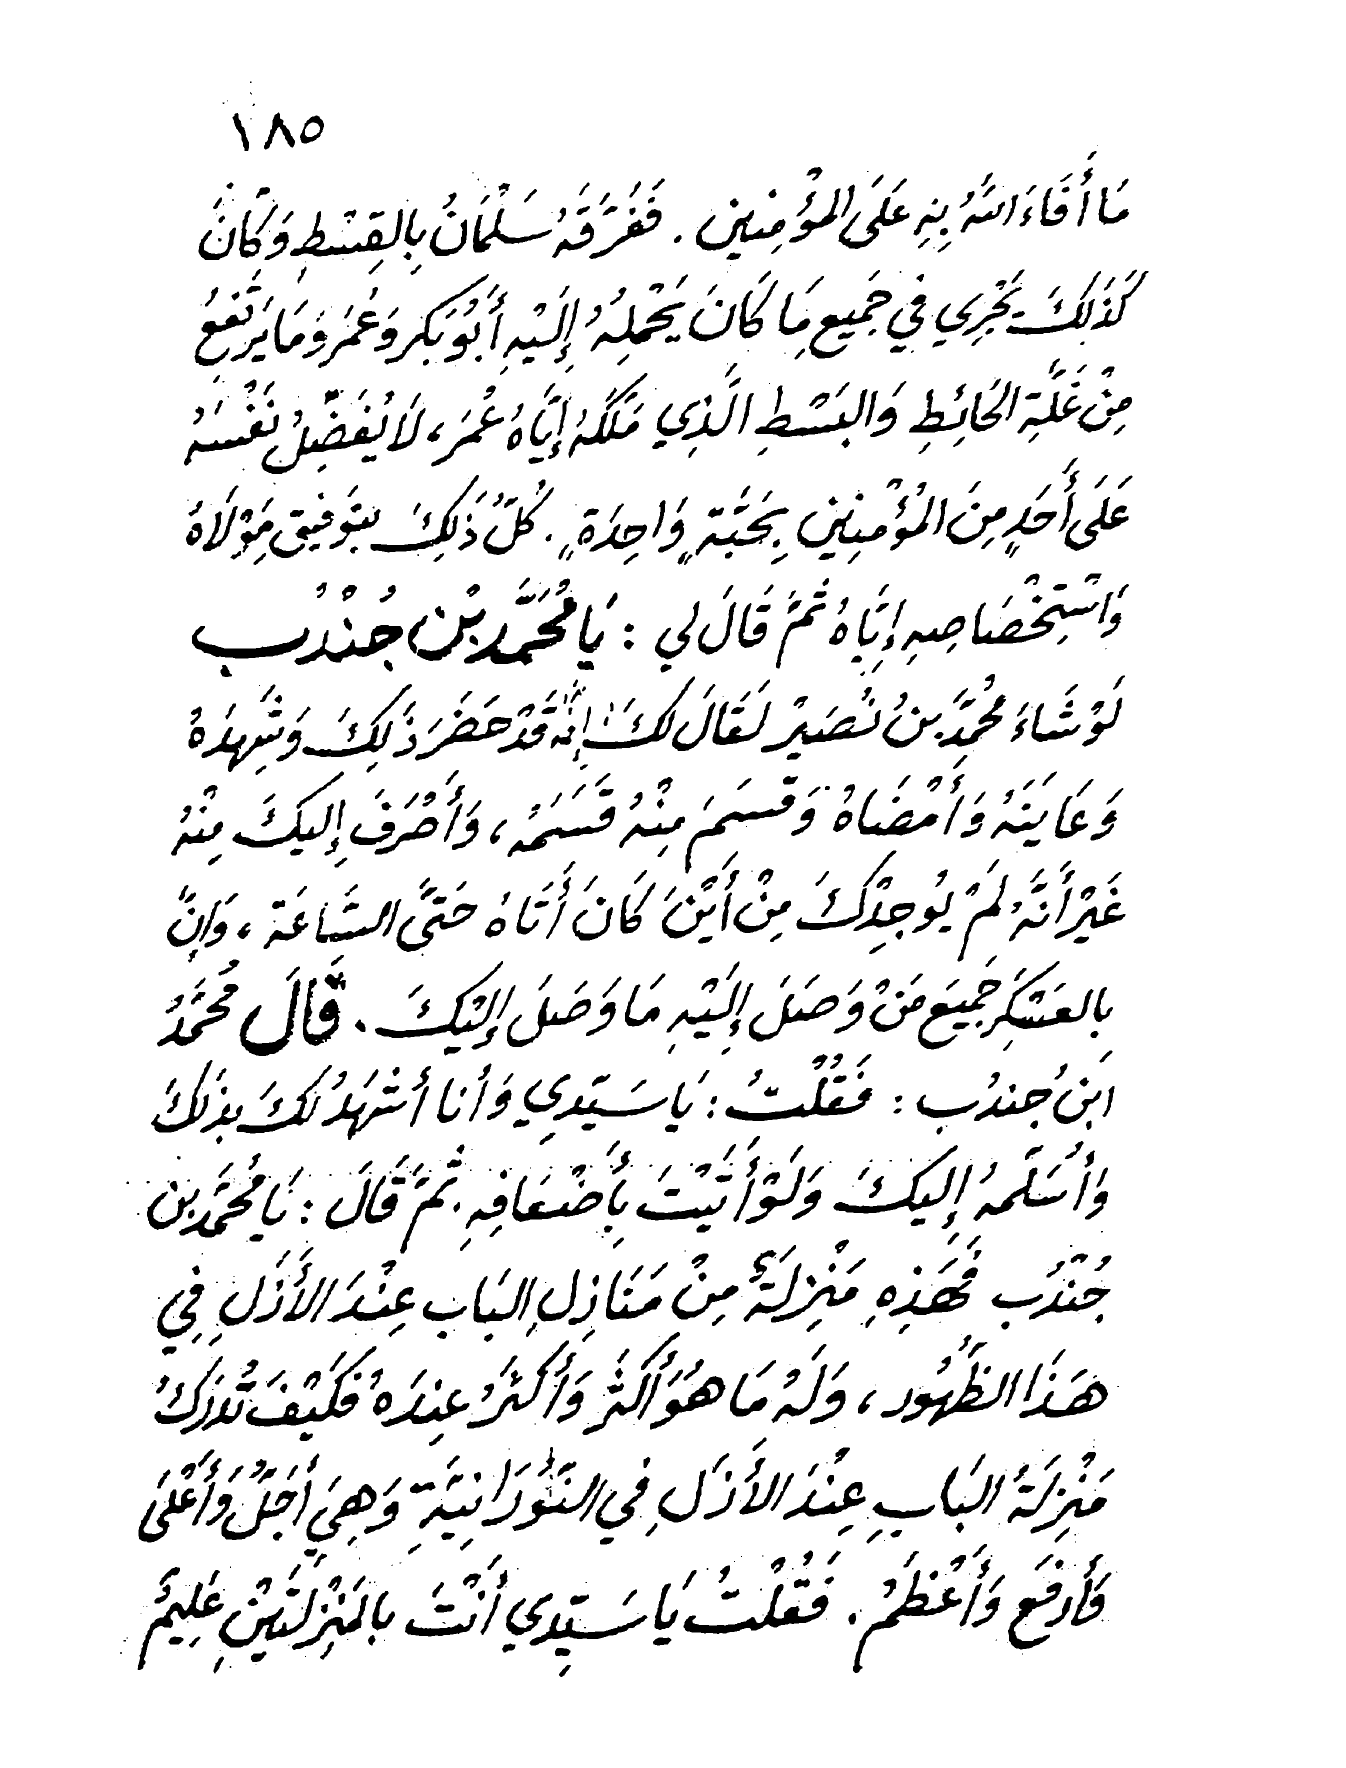 ١٨٥
مَا أَفَاءَ اللَّهُ بِهِ عَلَى المُؤْمِنِين . فَفَرَّقَهُ سَلْمَانُ بِالقِسْطِ وَكَانَ
كَذَلِكَ يَجْرِي في جَمِيعِ مَا كَانَ يَحْمِلُهُ إِلَيْهِ أَبُو بَكر وَعُمَر وَمَا يَرتَفِعُ
مِنْ غَلَّةِ الحَائِطِ وَالبَسْطِ الَّذِي مَلَّكَهُ إِيَّاهُ عُمَر، لَا يُفَضِّلُ نَفْسَهُ
عَلَى أَحَدٍ مِنَ المُؤْمِنِين بِحَبَّةٍ وَاحِدَةٍ . كُلُّ ذَلِكَ بِتَوفِيقِ مَوْلَاهُ
وَاسْتِخْصَاصِهِ إِيَّاهُ ثُمَّ قَالَ لي : يَا مُحَمَّد بْن جُنْدُب
لَوْ شَاءَ مُحَمَّدُ بنُ نُصَيْر لَقَالَ لَكَ إِنَّهُ قَدْ حَضَرَ ذَلِكَ وَشَهِدَهُ
وَعَايَنَهُ وَأَمْضَاهُ وَقَسَمَ مِنْهُ قَسَمَهُ ، وَأَصْرَفَ إِلَيكَ مِنْهُ
غَيْرَ أَنَّهُ لَمْ يُوجِدْكَ مِنْ أَيْنَ كَانَ أَتَاهُ حَتَّى السَّاعَة ، وَانَّ
بالعَسْكَرِ جَمِيعَ مَنْ وَصَلَ إِلَيْهِ مَا وَصَلَ إِلَيْكَ . قَالَ مُحَمَّدُ
ابنُ جُندُب : فَقُلْتُ : يَا سَيِّدِي وَأنا أَشْهَدُ لَكَ بِذَلكَ
وَأُسَلِّمهُ إِلَيكَ وَلَوْ أَتَيْتَ بِأَضْعَافِهِ . ثُمَّ قَالَ : يَا مُحَمَّد بن
جُنْدُب فَهَذِهِ مَنْزِلَةٌ مِنْ مَنَازِلِ البَاب عِنْدَ الأَزَلِ فِي
هَذَا الظُّهُور ، وَلَهُ مَا هُوَ أَكبَر وَأَكثَرُ عِندَهُ فَكَيْفَ تُدْرَكُ
مَنْزِلَةُ البَابِ عِنْدَ الأَزَلِ فِي النُّورَانِيَّةِ وَهِيَ أَجَلُّ وَأَعْلَى
وَأَرفَع وَأَعْظَمُ . فَقُلْتُ يَا سَيِّدِي أَنْتَ بالمَنْزِلَتَيْنِ عَلِيمٌ